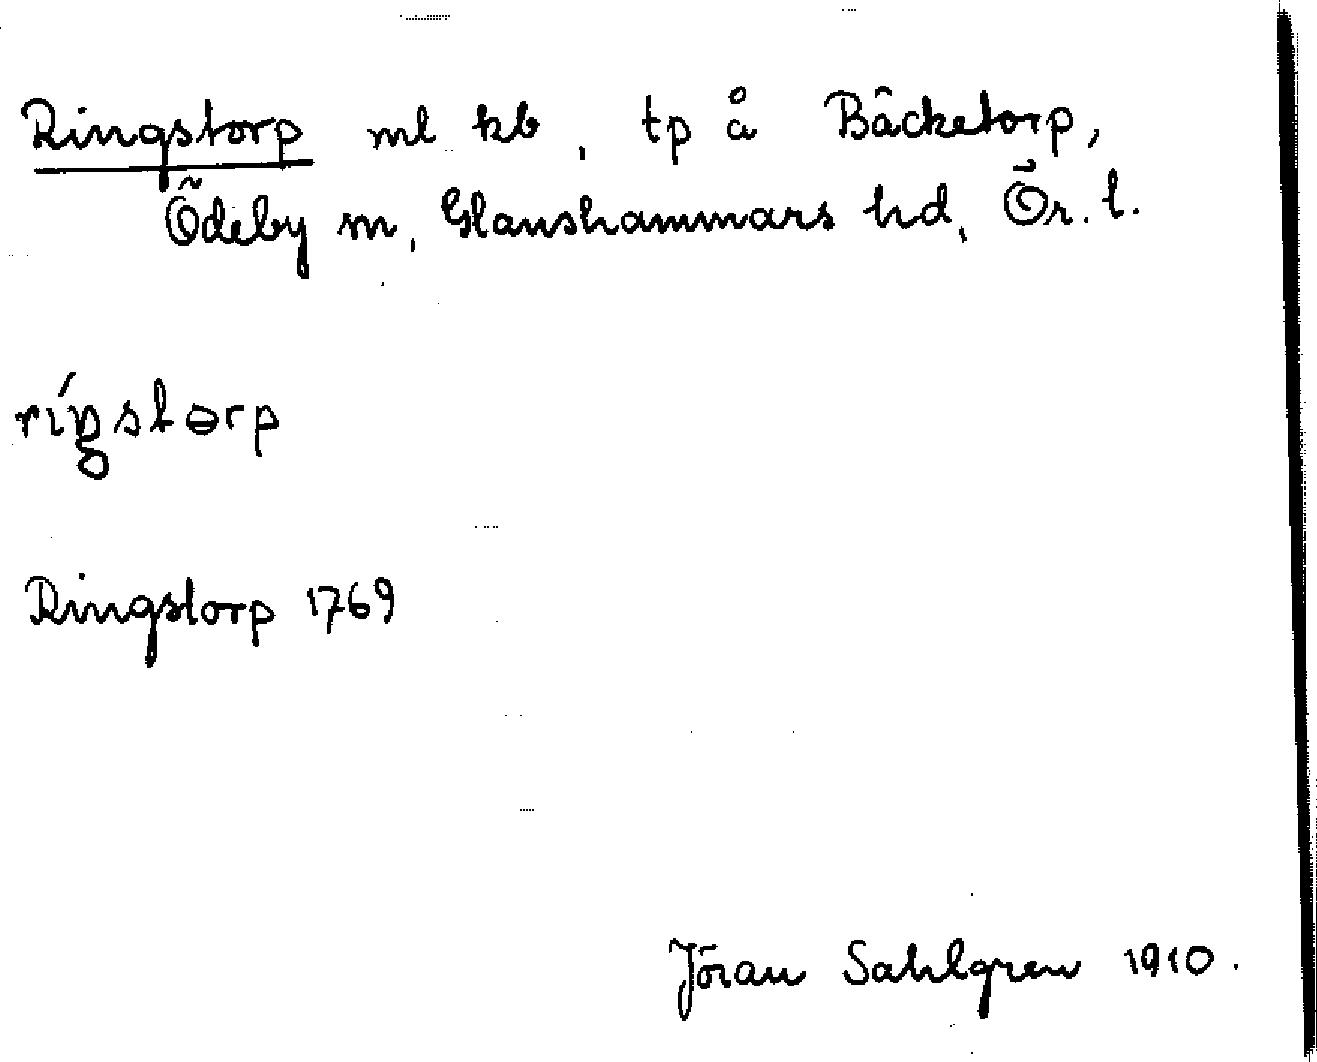 Ringstorp ml kb, tp å Bäcketorp,
Ödeby m, Glanshammars hd, Ör. l.
ríŋstɵrp
Ringstorp 1769
Jöran Sahlgren 1910.